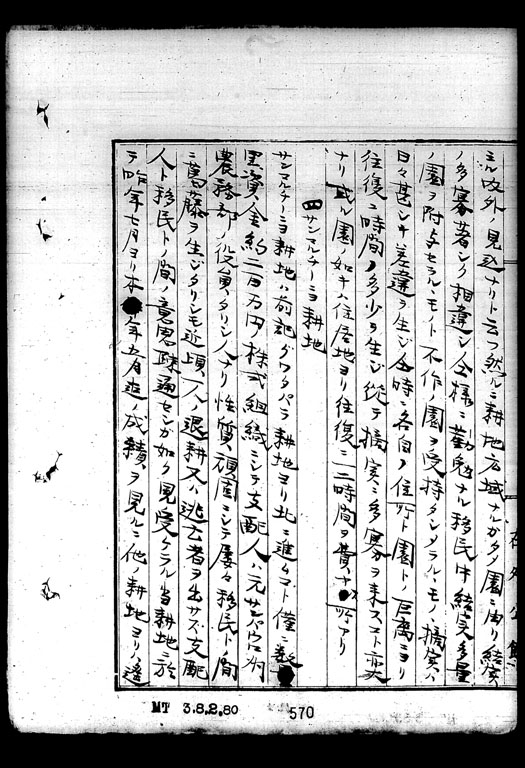 ル以外ノ見込ナリト云フ然ルニ耕地広域ナルガタメ園ニ由リ結実
ノ多寡著シク相違シ仝様ニ勤勉ナル移民中結実多量
ノ園ヲ附与セラルモノト不作ノ園ヲ受持タシメラル、モノ摘実ハ
日々甚シキ差違ヲ生ジ仝時ニ各自ノ住所ト園トノ距离ニヨリ
往復ニ時間ノ多少ヲ生ジ従テ摘実ニ多寡ヲ来スコト亦実
ナリ或ル園ノ如キハ住居地ヨリ往復ニ二時間ヲ費ヤス所アリ
四サンマルチーニヨ耕地
サンマルチーニヨ耕地ハ前記グワタパラ耕地ヨリ北ニ進ムコト僅ニ数
里資金約二百万円株式組織ニシテ支配人ハ元サンパウロ州
農務部ノ役員タリシ人ナリ性質頑固ニシテ屡々移民トノ間
ニ葛藤ヲ生ジタリシモ近頃一人ノ退耕又ハ逃亡者ヲ出サズ支配
人ト移民トノ間ノ意思疎通センガ如ク見受ケラル当耕地ニ於
テ昨年七月ヨリ本年五月迄ノ成績ヲ見ルニ他ノ耕地ヨリ遙
在外公館
MT 3.8.2.80
570